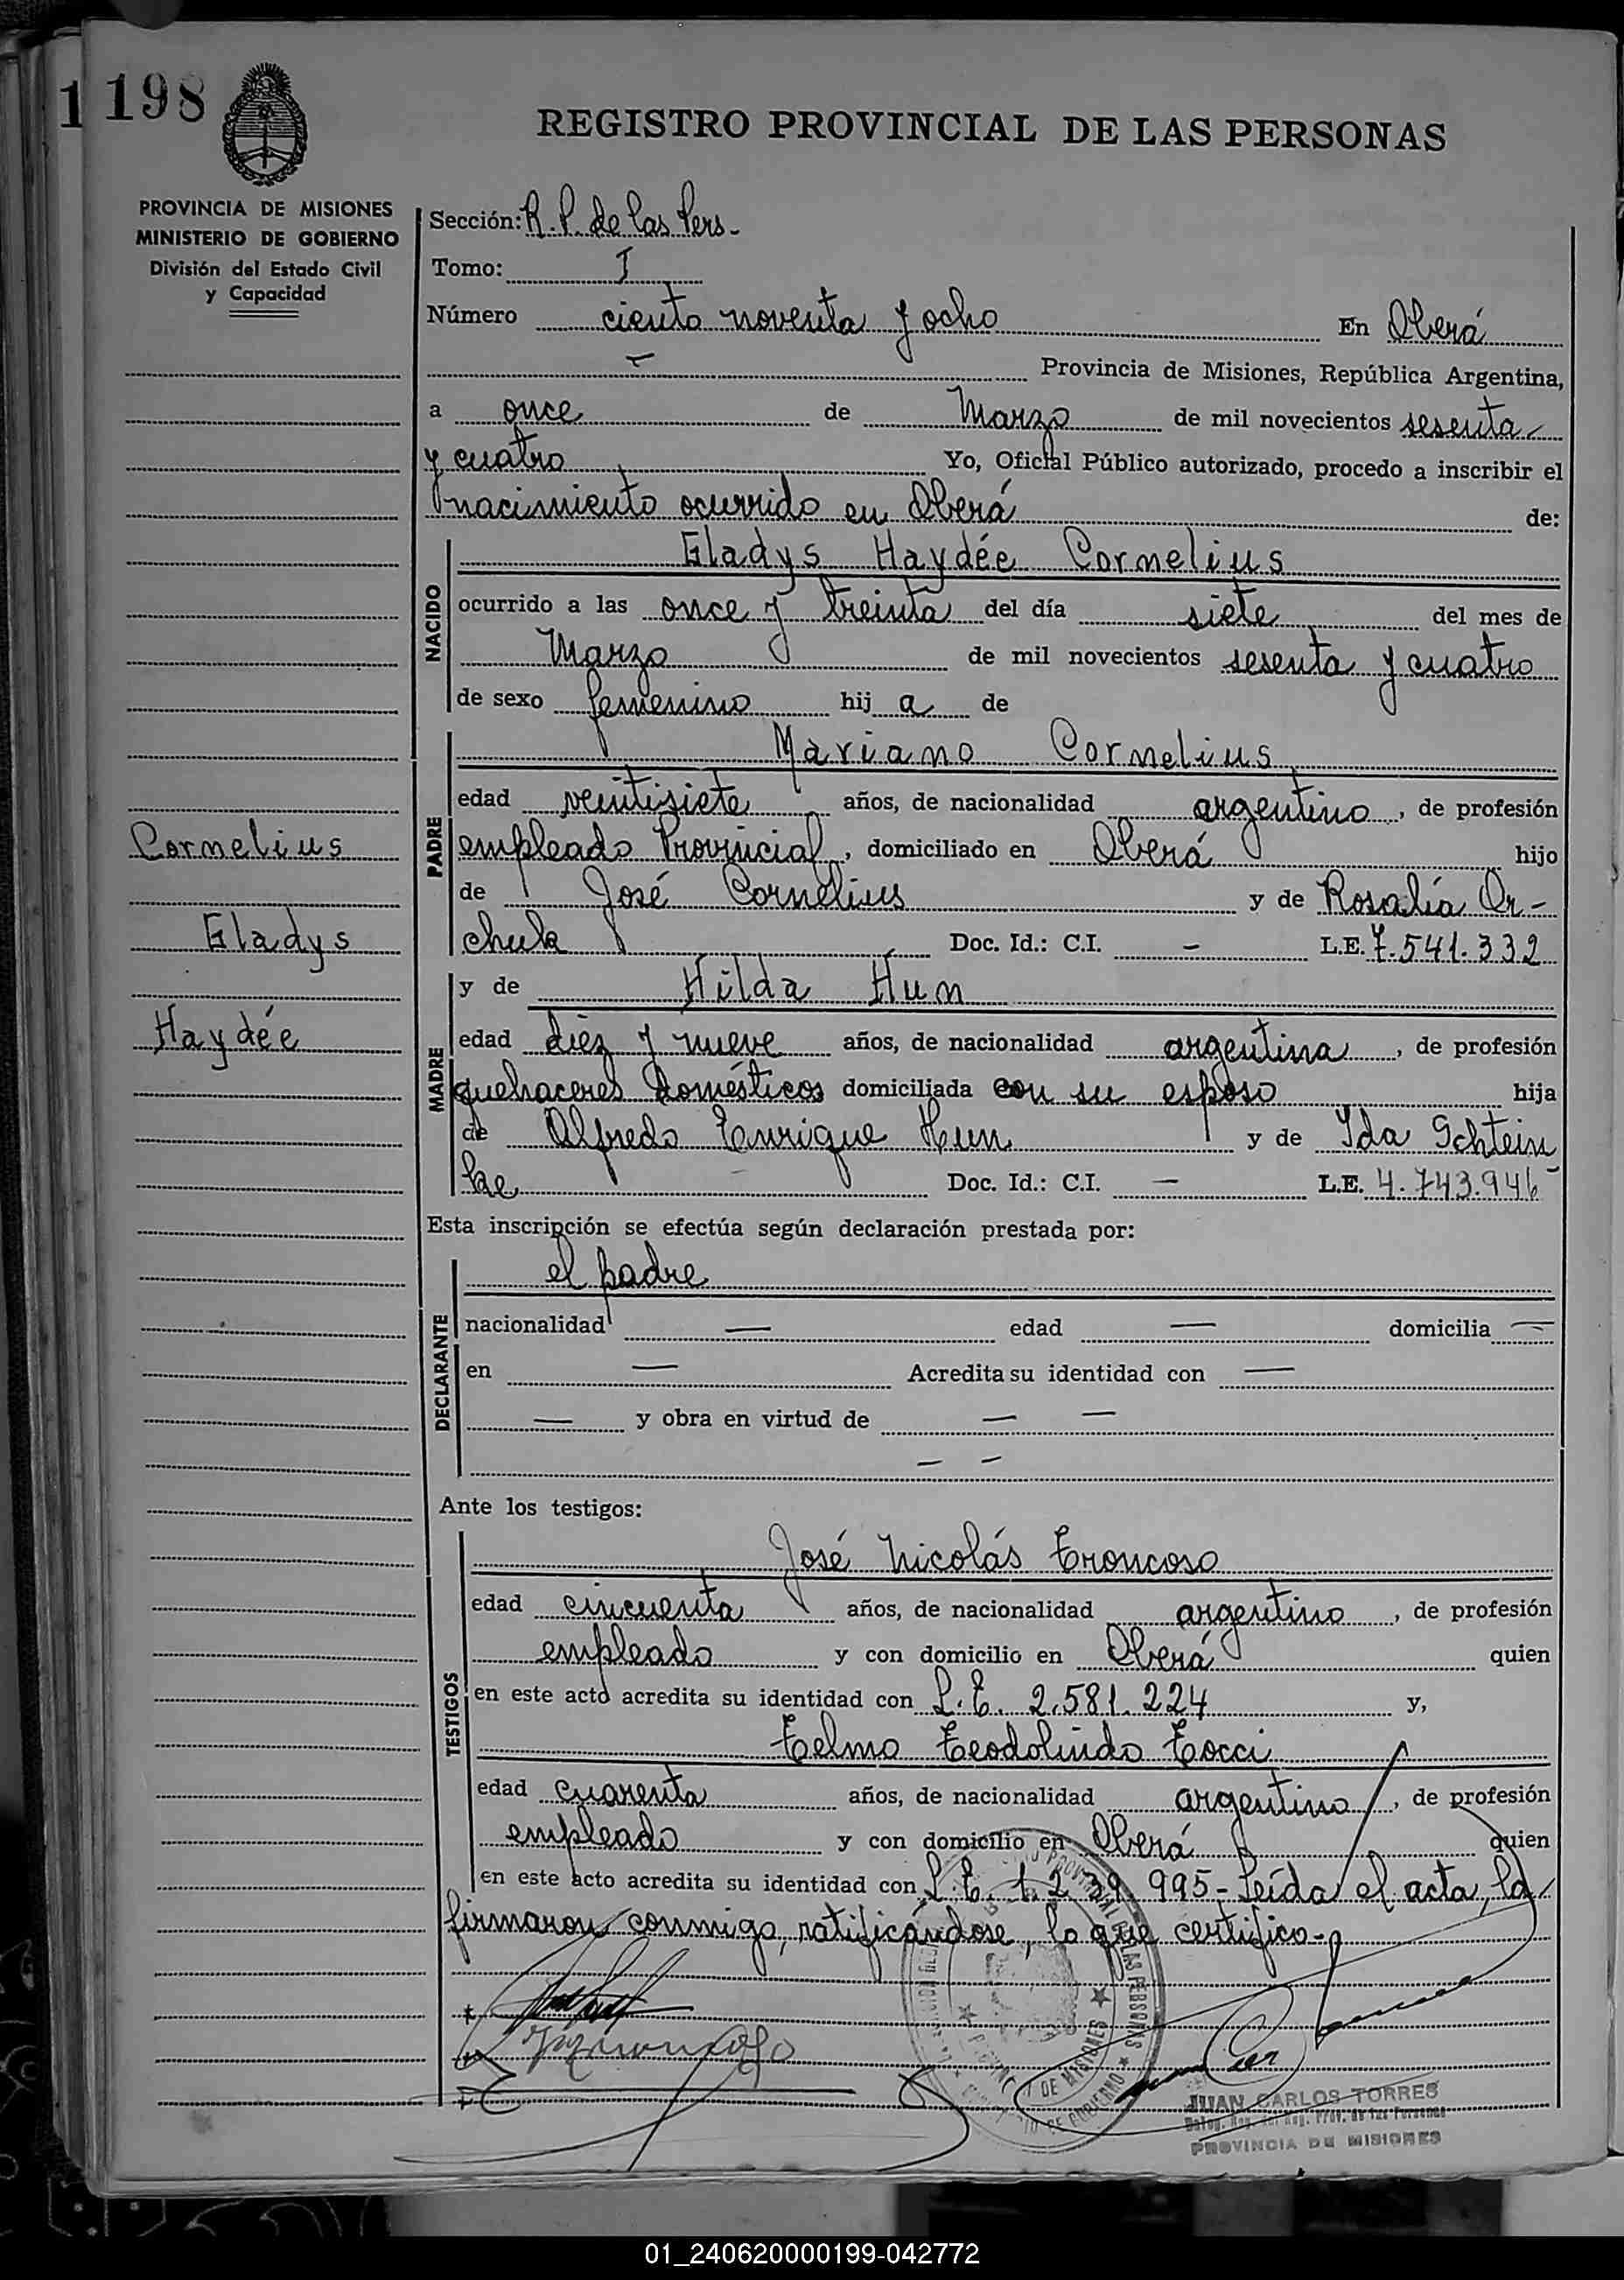 1 198
REGISTRO PROVINCIAL DE LAS PERSONAS
PROVINCIA DE MISIONES
MINISTERIO DE GOBIERNO
División del Estado Civil
y Capacidad
Sección: R. P. de las Pers.-
Tomo: I
Número ciento noventa y ocho En Oberá
- Provincia de Misiones, República Argentina,
a once de Marzo de mil novecientos sesenta
y cuatro Yo, Oficial Público autorizado, procedo a inscribir el
nacimiento ocurrido en Oberá de:
NACIDO
Gladys Haydée Cornelius
ocurrido a las once y treinta del día siete del mes de
Marzo de mil novecientos sesenta y cuatro
de sexo femenino hij a de
PADRE
Mariano Cornelius
edad veintisiete años, de nacionalidad argentino, de profesión
empleado Provincial, domiciliado en Oberá hijo
de José Cornelius y de Rosalía Or-
chuk Doc. Id.: C.I. - L.E. 7.541.332
Cornelius
Gladys
Haydée
MADRE
y de Hilda Hun
edad diez y nueve años, de nacionalidad argentina, de profesión
quehaceres domésticos domiciliada con su esposo hija
de Alfredo Enrique Hun y de Ida Schtein
ke Doc. Id.: C.I. - L.E. 4.743.946
Esta inscripción se efectúa según declaración prestada por:
DECLARANTE
el padre
nacionalidad — edad — domicilia —
en — Acredita su identidad con —
— y obra en virtud de — —
— —
Ante los testigos:
TESTIGOS
José Nicolás Troncoso
edad cincuenta años, de nacionalidad argentino, de profesión
empleado y con domicilio en Oberá quien
en este acto acredita su identidad con L.E. 2.581.224 y,
Telmo Teodolindo Tocci
edad cuarenta años, de nacionalidad argentino, de profesión
empleado y con domicilio en Oberá quien
en este acto acredita su identidad con L.E. 1.239.995- Leída el acta, la
firmaron conmigo, ratificándose, lo que certifico.-
JUAN CARLOS TORRES
PROVINCIA DE MISIONES
01_240620000199-042772